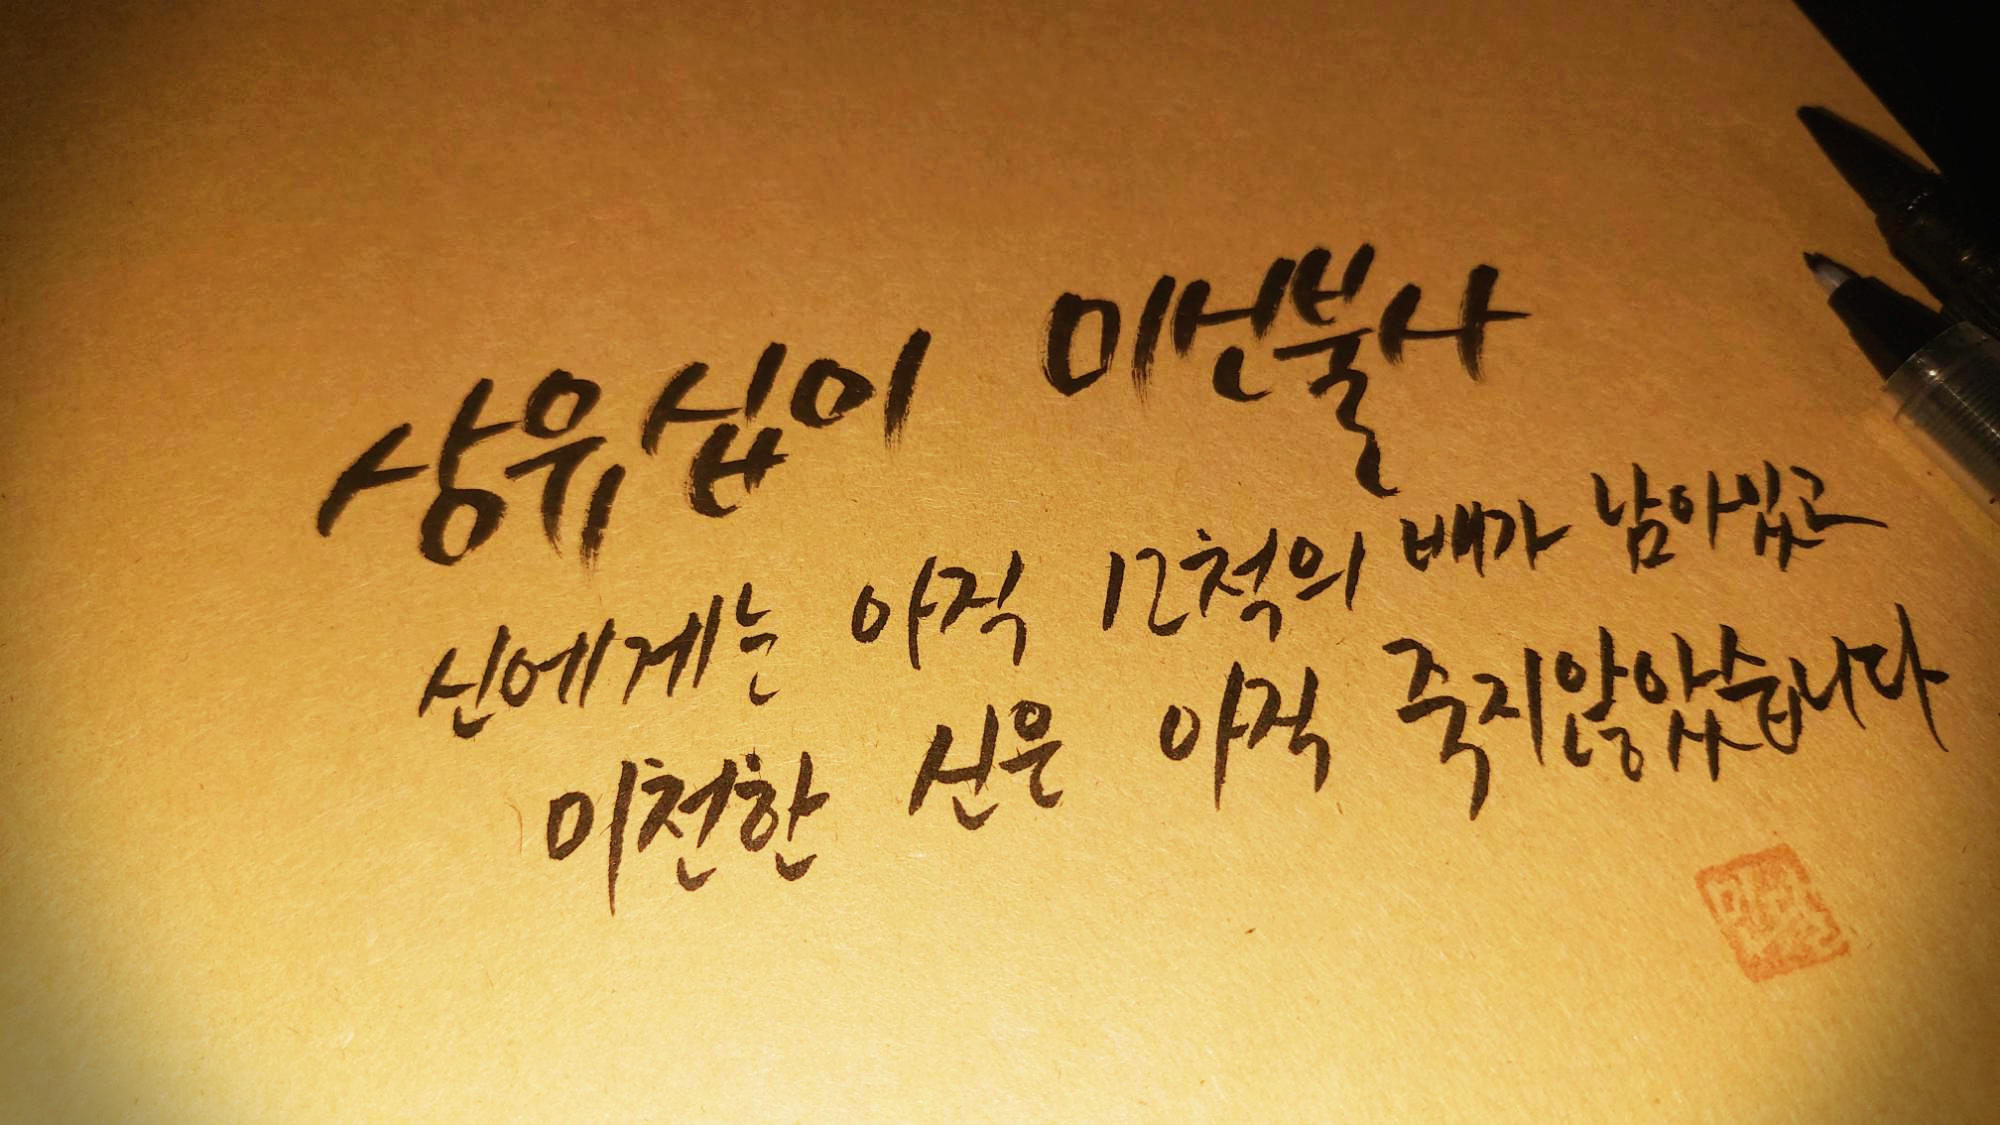 상유십이 미신불사
신에게는 아직 12척의 배가 남아있고
미천한 신은 아직 죽지않았습니다